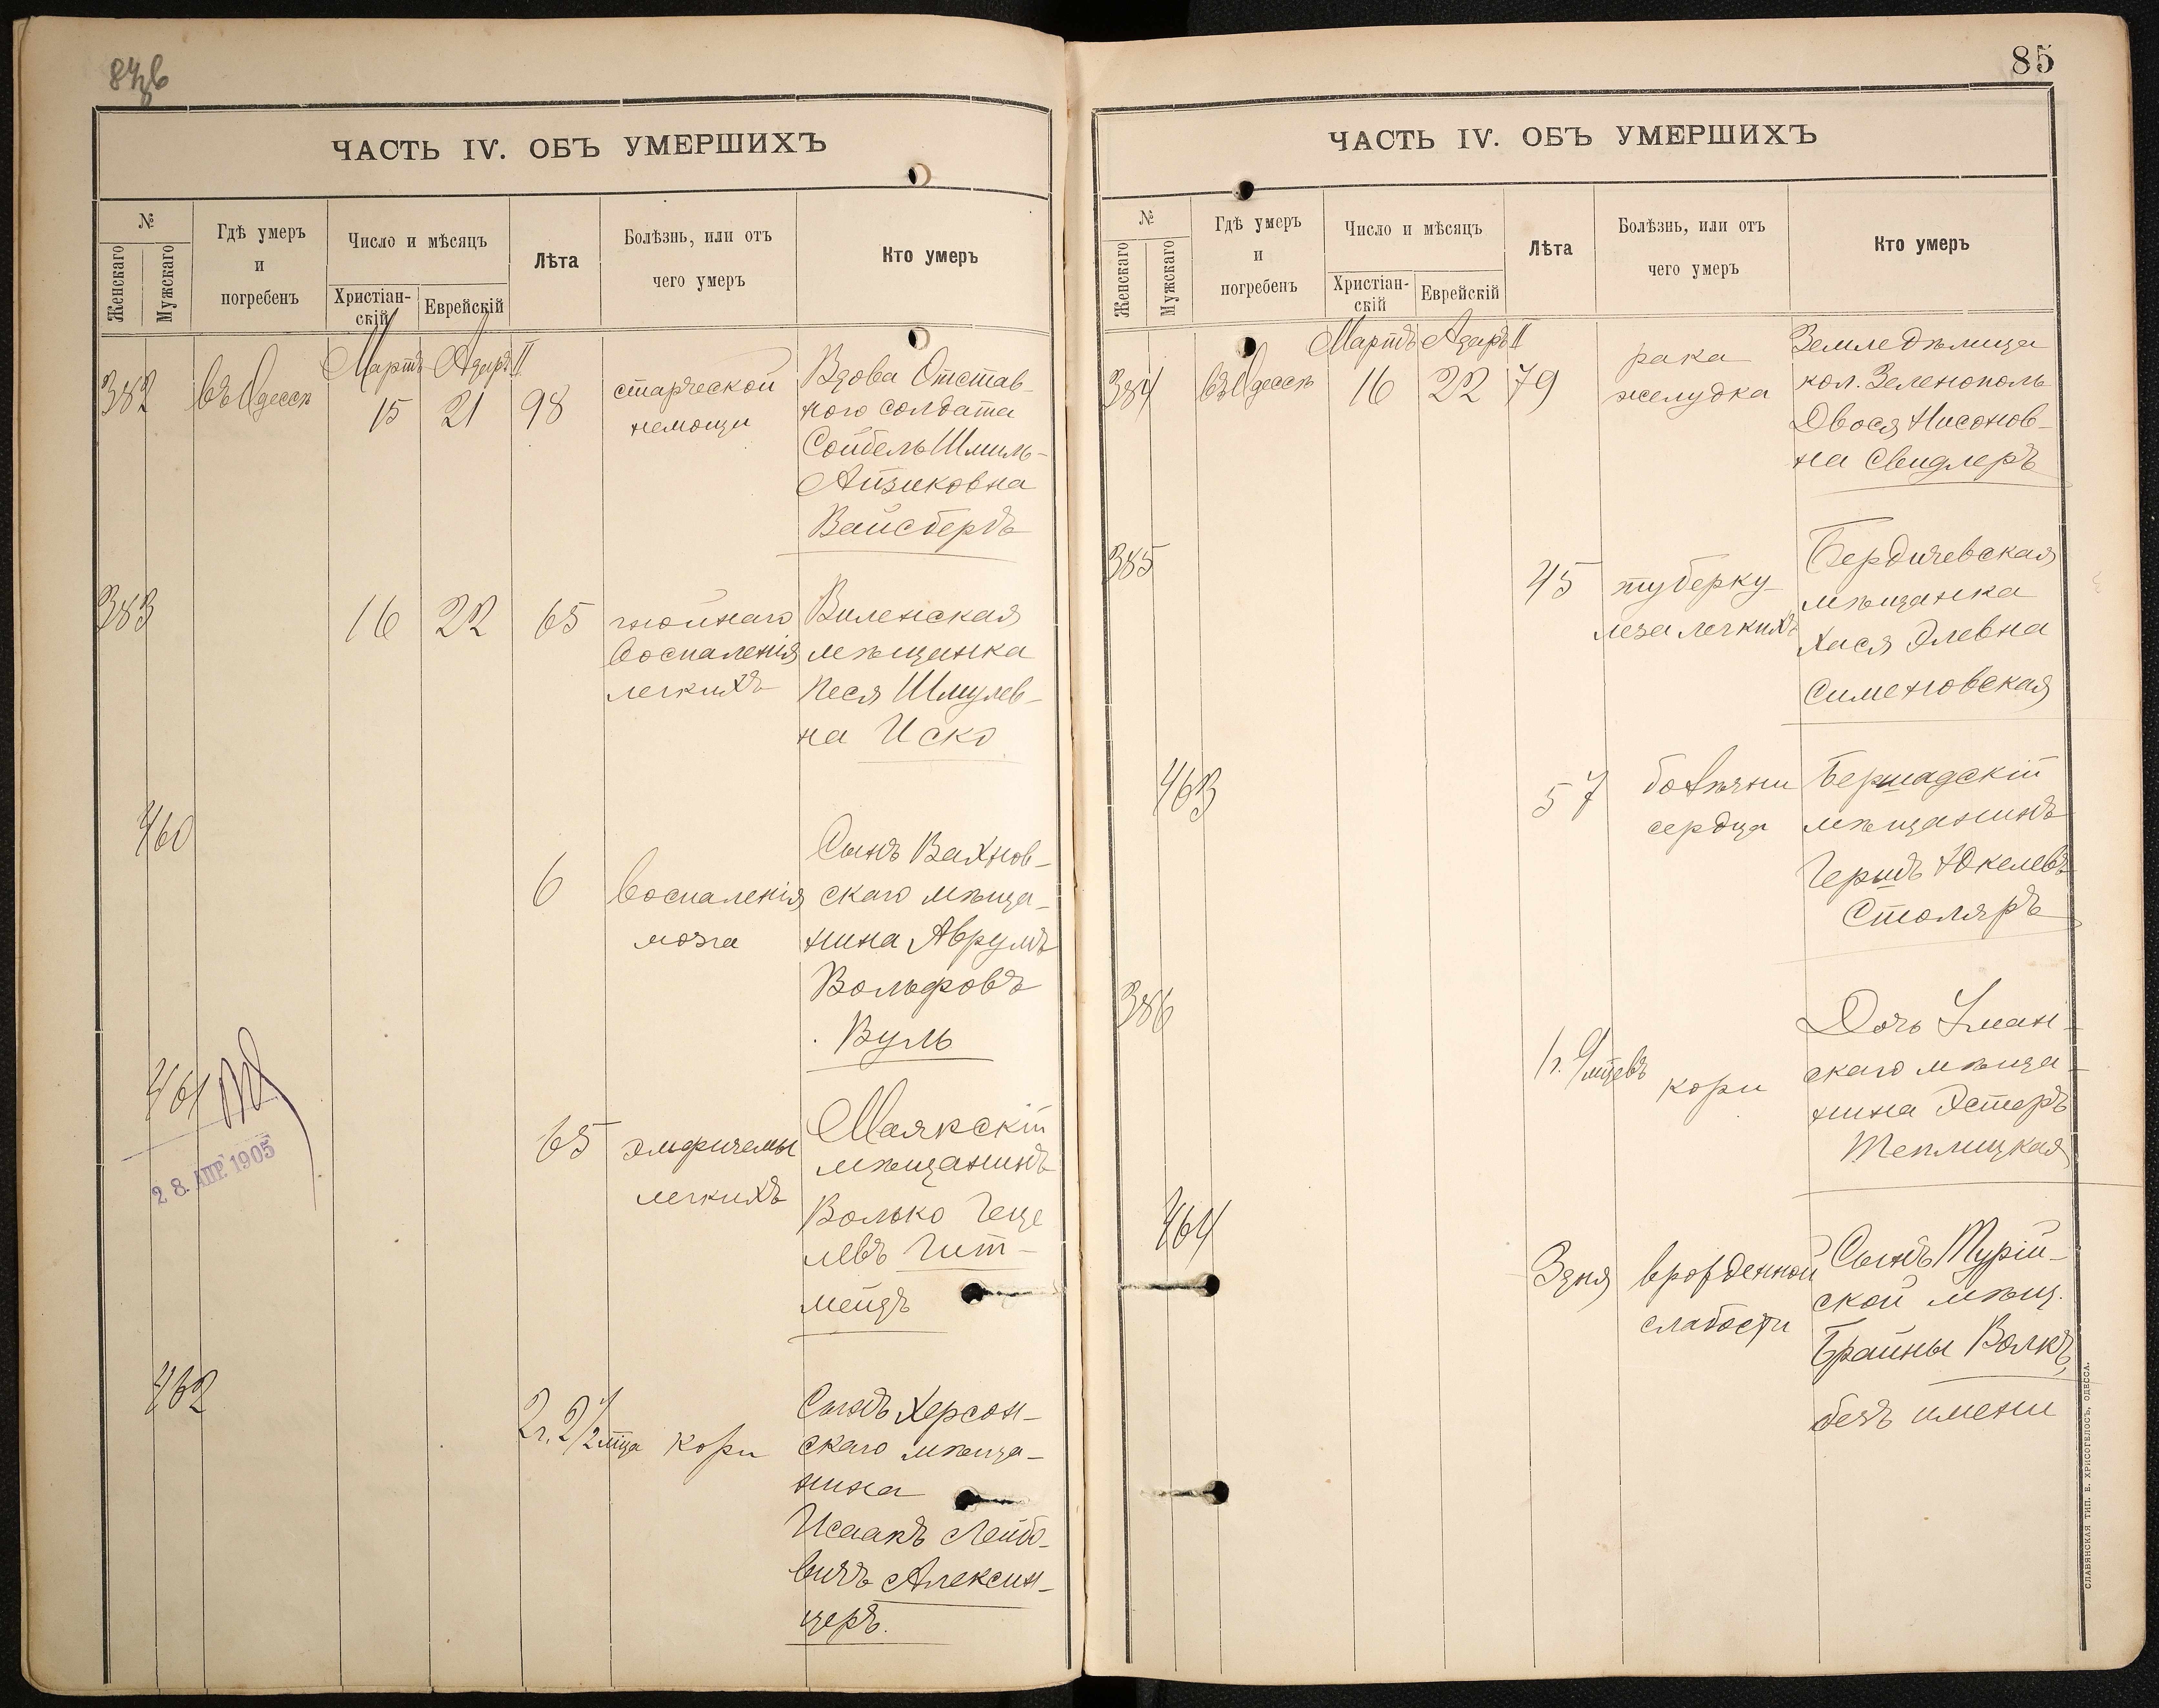 ЧАСТЬ IV. ОБЪ УМЕРШИХЪ
№
Женскаго
Мужскаго
Гдѣ умеръ
и
погребенъ
Число и мѣсяцъ
Христіан-
скій
Еврейскій
Лѣта
Болѣзнь, или отъ
чего умеръ
Кто умеръ
Мартъ Адаръ II
382 въ Одессѣ 15 21 98
старческой
немощи
Вдова Отстав-
ного солдата
Сойбель Шмиль-
Айзиковна
Вайсбердъ
383 16 22 65
гнойнаго
воспаленія
легкихъ
Виленская
мѣщанка
Песя Шмулев-
на Иско
460 6
воспаленія
мозга
Сынъ Вахнов-
скаго мѣща-
нина Аврумъ
Вольфовъ
Вуль
461 65
28. АПР. 1905
эмфиземы
легкихъ
Маякскій
мѣщанинъ
Волько Геце
левъ Гит-
мейдъ
462 2 г. 2 1/2 мца кори
Сынъ Херсон-
скаго мѣща-
нина
Исаакъ Лейбо-
вичъ Алексин-
церъ.
85
ЧАСТЬ IV. ОБЪ УМЕРШИХЪ
№
Женскаго
Мужскаго
Гдѣ умеръ
и
погребенъ
Число и мѣсяцъ
Христіан-
скій
Еврейскій
Лѣта
Болѣзнь, или отъ
чего умеръ
Кто умеръ
Мартъ Адаръ II
384 въ Одессѣ 16 22 79
рака
желудка
Земледѣлица
кол. Зеленополь
Двося Нисонов-
на Свидлеръ
385 45
туберку-
леза легкихъ
Бердичевская
мѣщанка
Хася Элевна
Сименовская
463 57
болѣзни
сердца
Бершадскій
мѣщанинъ
Гершъ Юкелевъ
Столяръ
386 1 г. 9 мцевъ кори
Дочь Уман-
скаго мѣща-
нина Эстеръ
Теплицкая
464 3 дня
врожденной
слабости
Сынъ Турій-
ской мѣщ.
Брайны Волкъ,
безъ имени
СЛАВЯНСКАЯ ТИП. Е. ХРИСОГЕЛОСЪ, ОДЕССА.